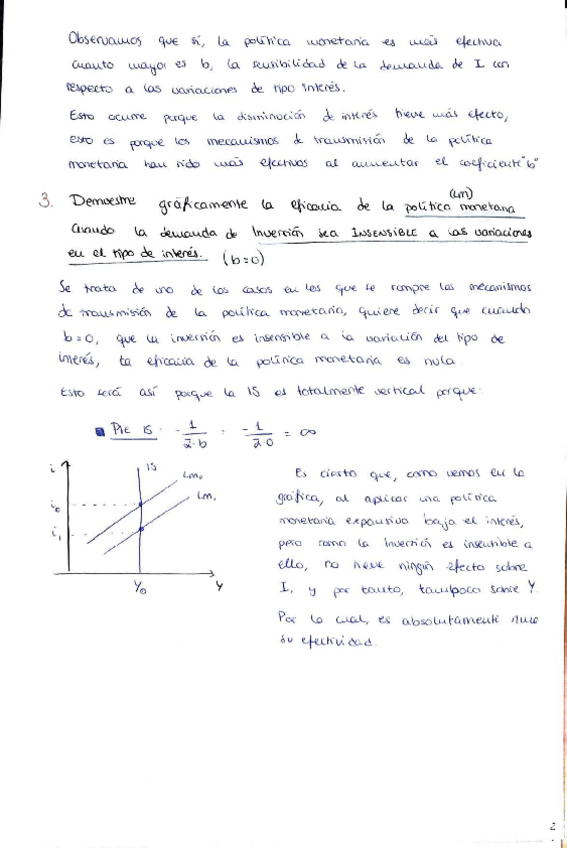 Observamos que sí, la política monetaria es más efectiva
cuanto mayor es b, la sensibilidad de la demanda de I con
respecto a las variaciones de tipo interés.
Esto ocurre porque la disminución de interés tiene más efecto,
esto es porque los mecanismos de transmisión de la política
monetaria han sido más efectivos al aumentar el coeficiente "b"
3. Demuestre gráficamente la eficacia de la política monetaria (LM)
cuando la demanda de Inversión sea INSENSIBLE a las variaciones
en el tipo de interés. (b=0)
Se trata de uno de los casos en los que se rompre los mecanismos
de transmisión de la política monetaria, quiere decir que cuando
b=0, que la inversión es insensible a la variación del tipo de
interés, la eficacia de la política monetaria es nula.
Esto será así porque la IS es totalmente vertical porque:
Pte IS: -1/2·b = -1/2·0 = ∞
i
IS
LM₀
LM₁
i₀
i₁
Y₀
Y
Es cierto que, como vemos en la
gráfica, al aplicar una política
monetaria expansiva baja el interés,
pero como la inversión es insensible a
ello, no tiene ningún efecto sobre
I, y por tanto, tampoco sobre Y.
Por lo cual, es absolutamente nula
su efectividad.
2